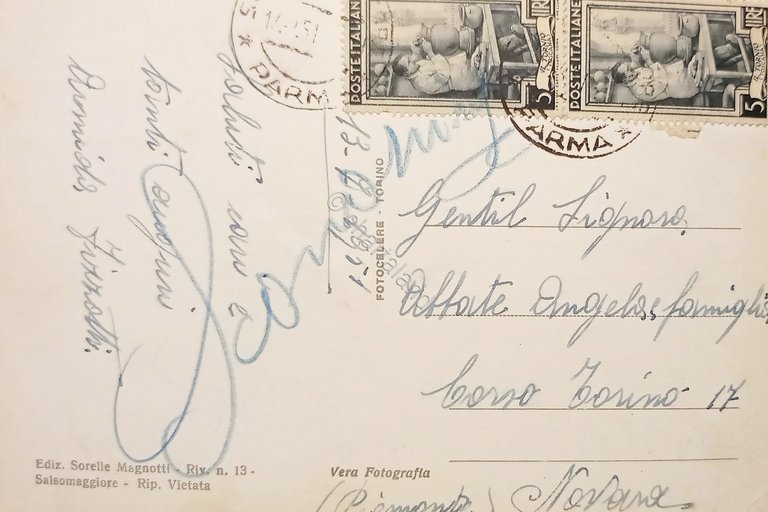 POSTE ITALIANE
5
LIRE
POSTE ITALIANE
5
LIRE
PARMA
PARMA
Saluti cari e
tanti auguri
Armida
FOTOCELERE - TORINO
Gentil Signora
Abbate Angela e famiglia
Corso Torino 17
Novara
(Piemonte)
Ediz. Sorelle Magnotti - Riv. n. 13 -
Salsomaggiore - Rip. Vietata
Vera Fotografia